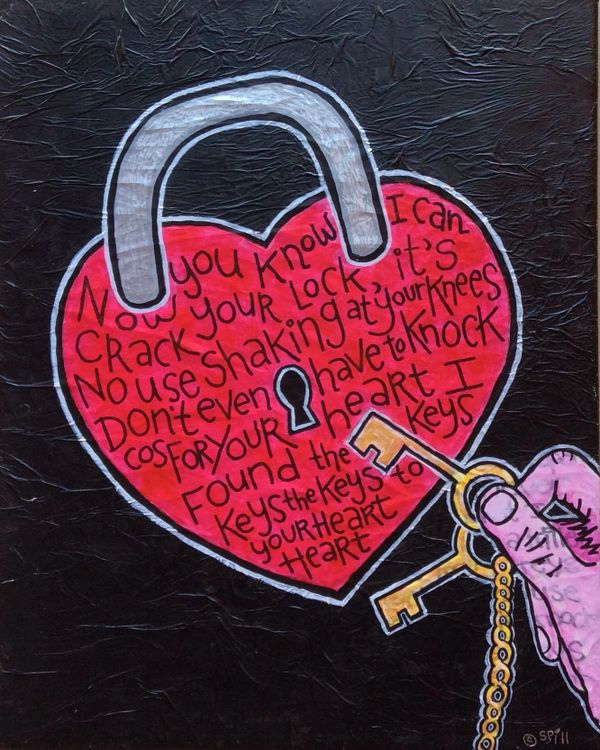 Now you know I can
CRack your Lock, it's
No use Shaking at your knees
Don't even have to knock
cos For your heart I
Found the Keys
Keys the Keys to
youR HeaRt
HeaRt
© SPill